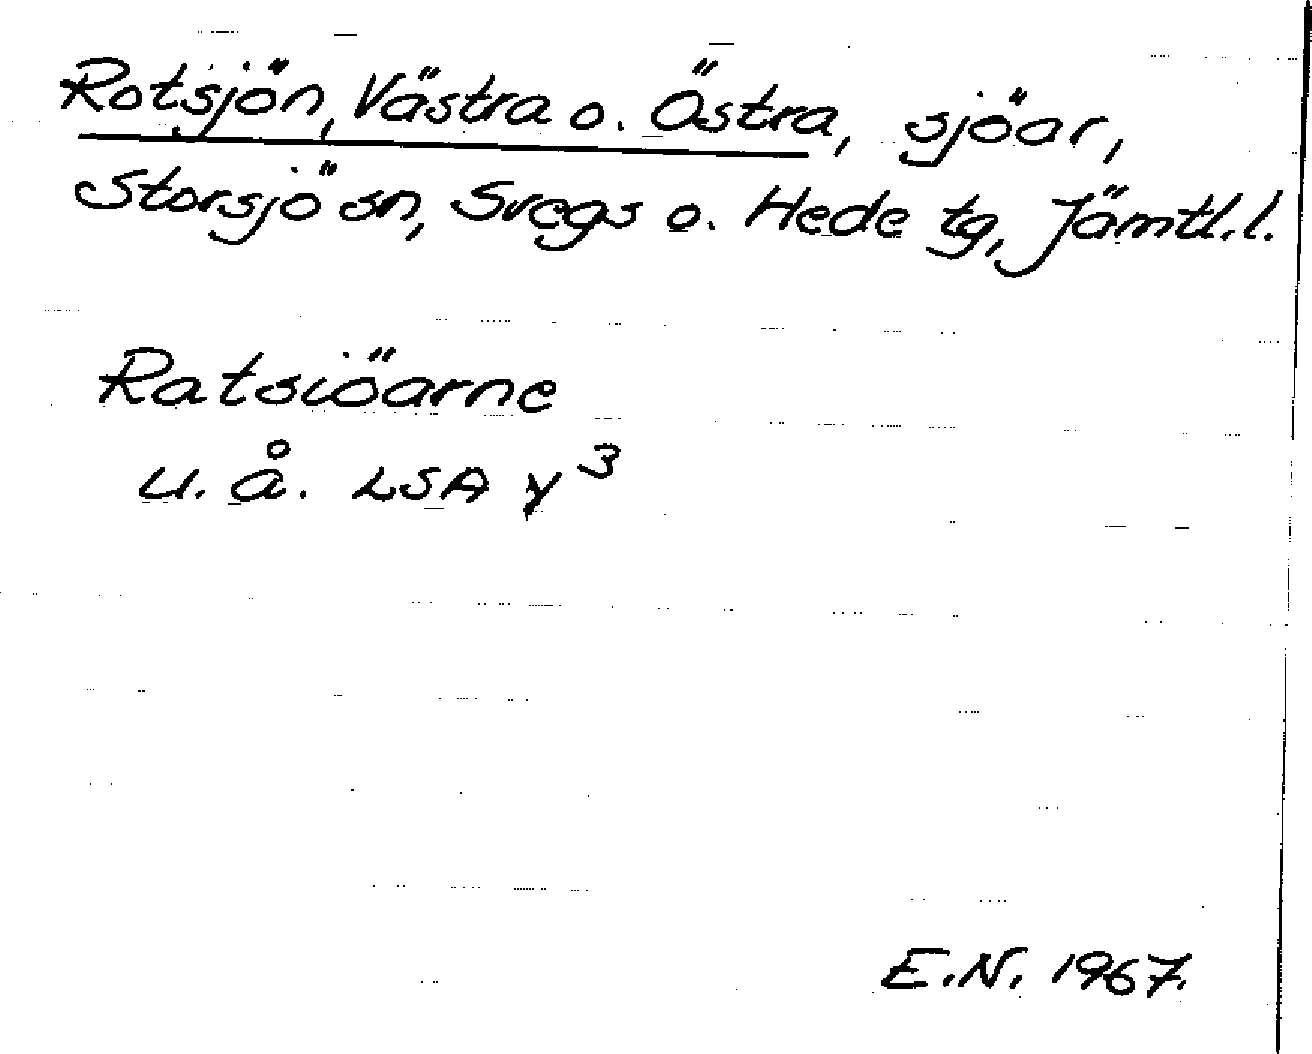 Rotsjön, Västra o. Östra, sjöar,
Storsjö sn, Svegs o. Hede tg, Jämtl.l.
Ratsiöarne
u. å. LSA γ 3
E.N. 1967.